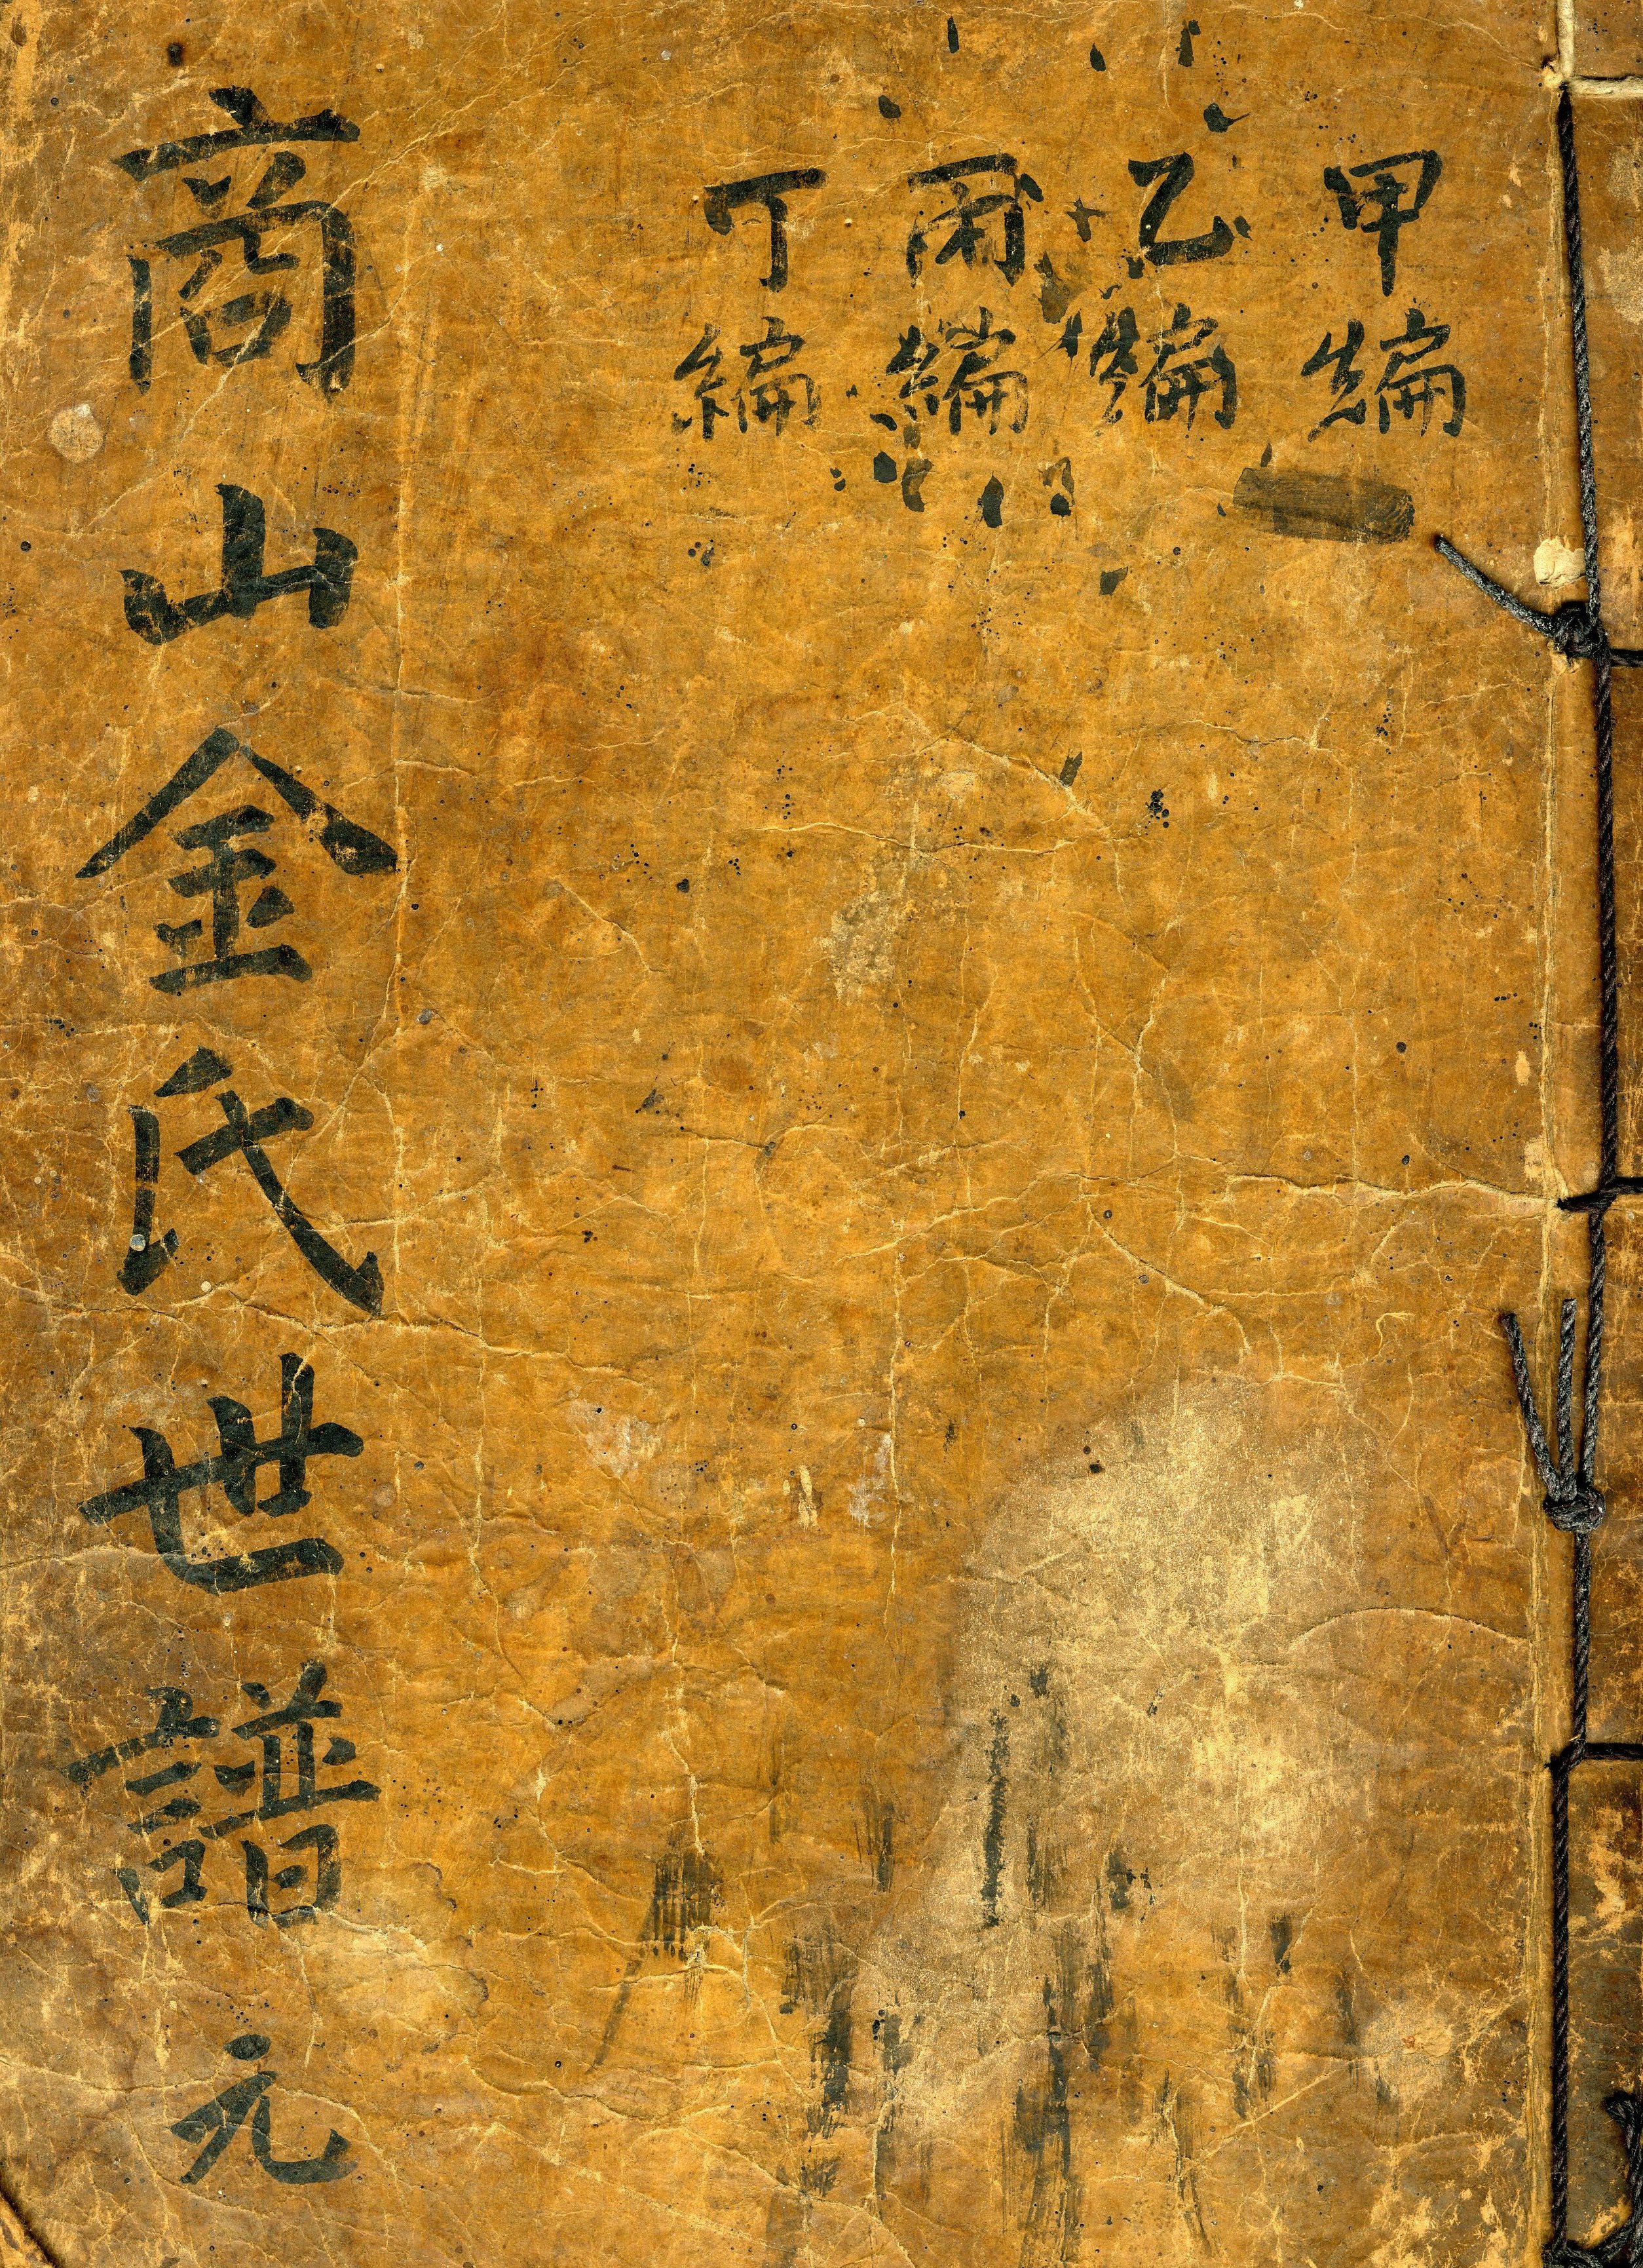 甲編
乙編
丙編
丁編
商山金氏世譜 元